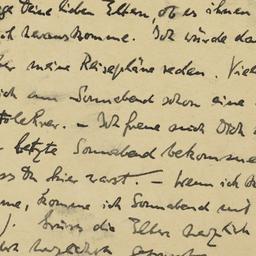 Deine lieben Eltern, ob es ihnen
ich herauskomme. Ich würde da
über meine Reisepläne reden. Viel
ich am Sonnabend schon eine
– Ich freue mich Dich
letzte Sonnabend bekomme
Du hier warst. – Wenn ich
komme ich Sonnabend mit
). Grüss die Eltern herzlich
herzlichst